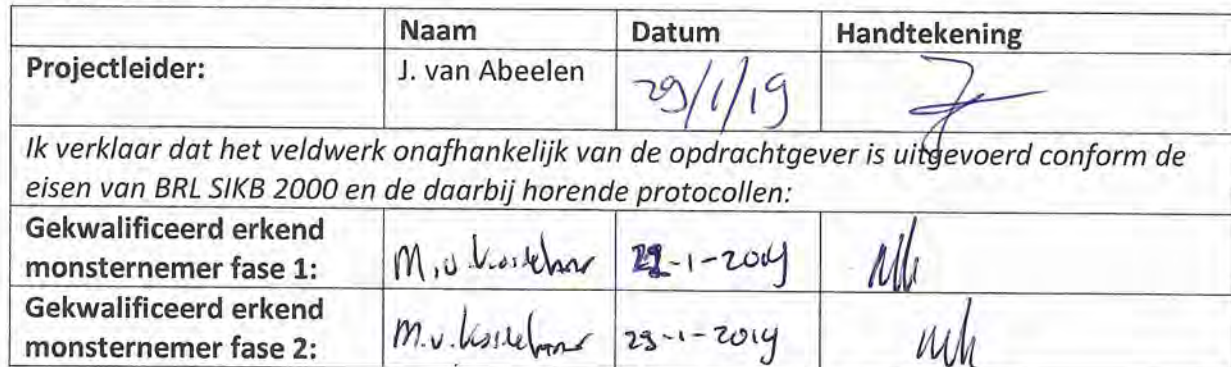 Naam Datum Handtekening
Projectleider: J. van Abeelen 29/1/19
Ik verklaar dat het veldwerk onafhankelijk van de opdrachtgever is uitgevoerd conform de
eisen van BRL SIKB 2000 en de daarbij horende protocollen:
Gekwalificeerd erkend
monsternemer fase 1: M.v. -1-2019
Gekwalificeerd erkend
monsternemer fase 2: M.v. 29-1-2019